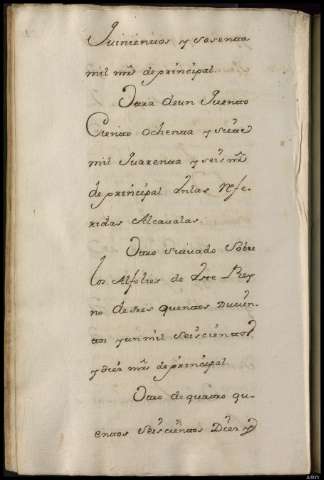 Quinientos y sesenta
mil mrs de prinzipal
Otra de un Quento
Ciento ochenta y siete
mil quarenta y seis mrs
de prinzipal en las Refe-
ridas Alcavalas.
Otro situado sobre
los Alfolies de este Rey
no de tres quentos Ducien-
tos y un mil seiscientos
y diez mrs de prinzipal
Otro de quatro qu-
entos seiscientos Diez y